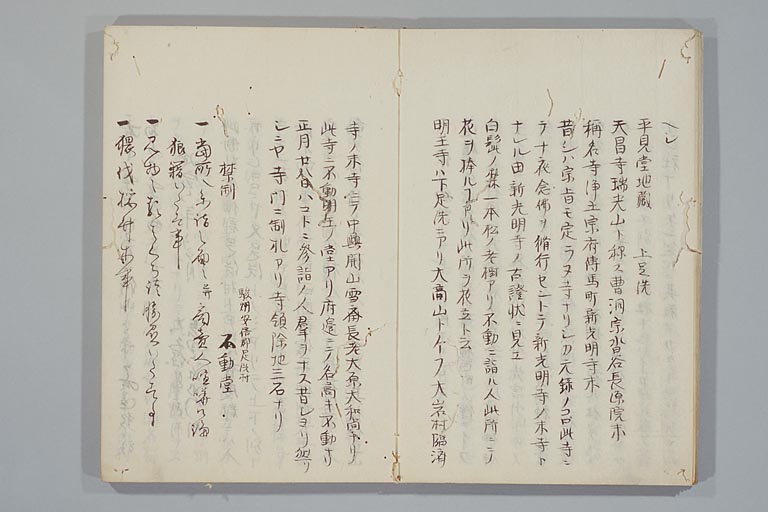 ヘシ
平見堂地蔵　上足洗
天昌寺瑞光山ト称ス曹洞宗沓谷長源院末
称名寺浄土宗府傳馬町新光明寺末
昔シハ宗旨モ定ラヌ寺ナリシカ元録ノコロ此寺ニ
テ十夜念佛ヲ脩行セントテ新光明寺ノ末寺ト
ナレル由新光明寺ノ古證状ニ見エ
白髭ノ森一本松ノ老樹アリ不動ニ詣ル人此所ニテ
花ヲ捧ルコアリ此所ヲ花立トス
明王寺ハ下足洗ニアリ大高山トイフ大岩村臨済
寺ノ末寺ニテ中興開山雪斎長老大原大和尚ナリ
此寺ニ不動明王ノ堂アリ府邊ニテ名高キ不動ナリ
正月廿八日ハコトニ参詣ノ人群ヲナス昔シヨリ
シニヤ寺門ニ制札アリ寺領除地三石ナリ
駿州安倍郡足洗村
不動堂
禁制
一 當所
狼藉いたす事
一
一 猥伐採竹木事